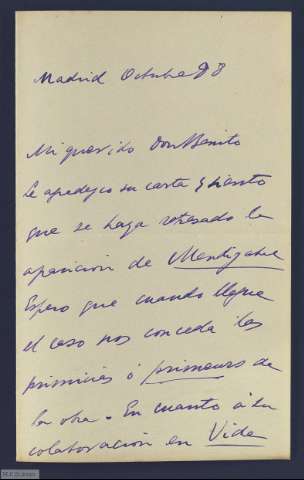 Madrid Octubre 98
Mi querido Don Benito
Le agradezco su carta y siento
que se haya retrasado la
aparicion de Mendizabal
Espero que cuando llegue
el caso nos conceda las
primicias ó primeurs de
la obra. En cuanto á su
colaboracion en Vida